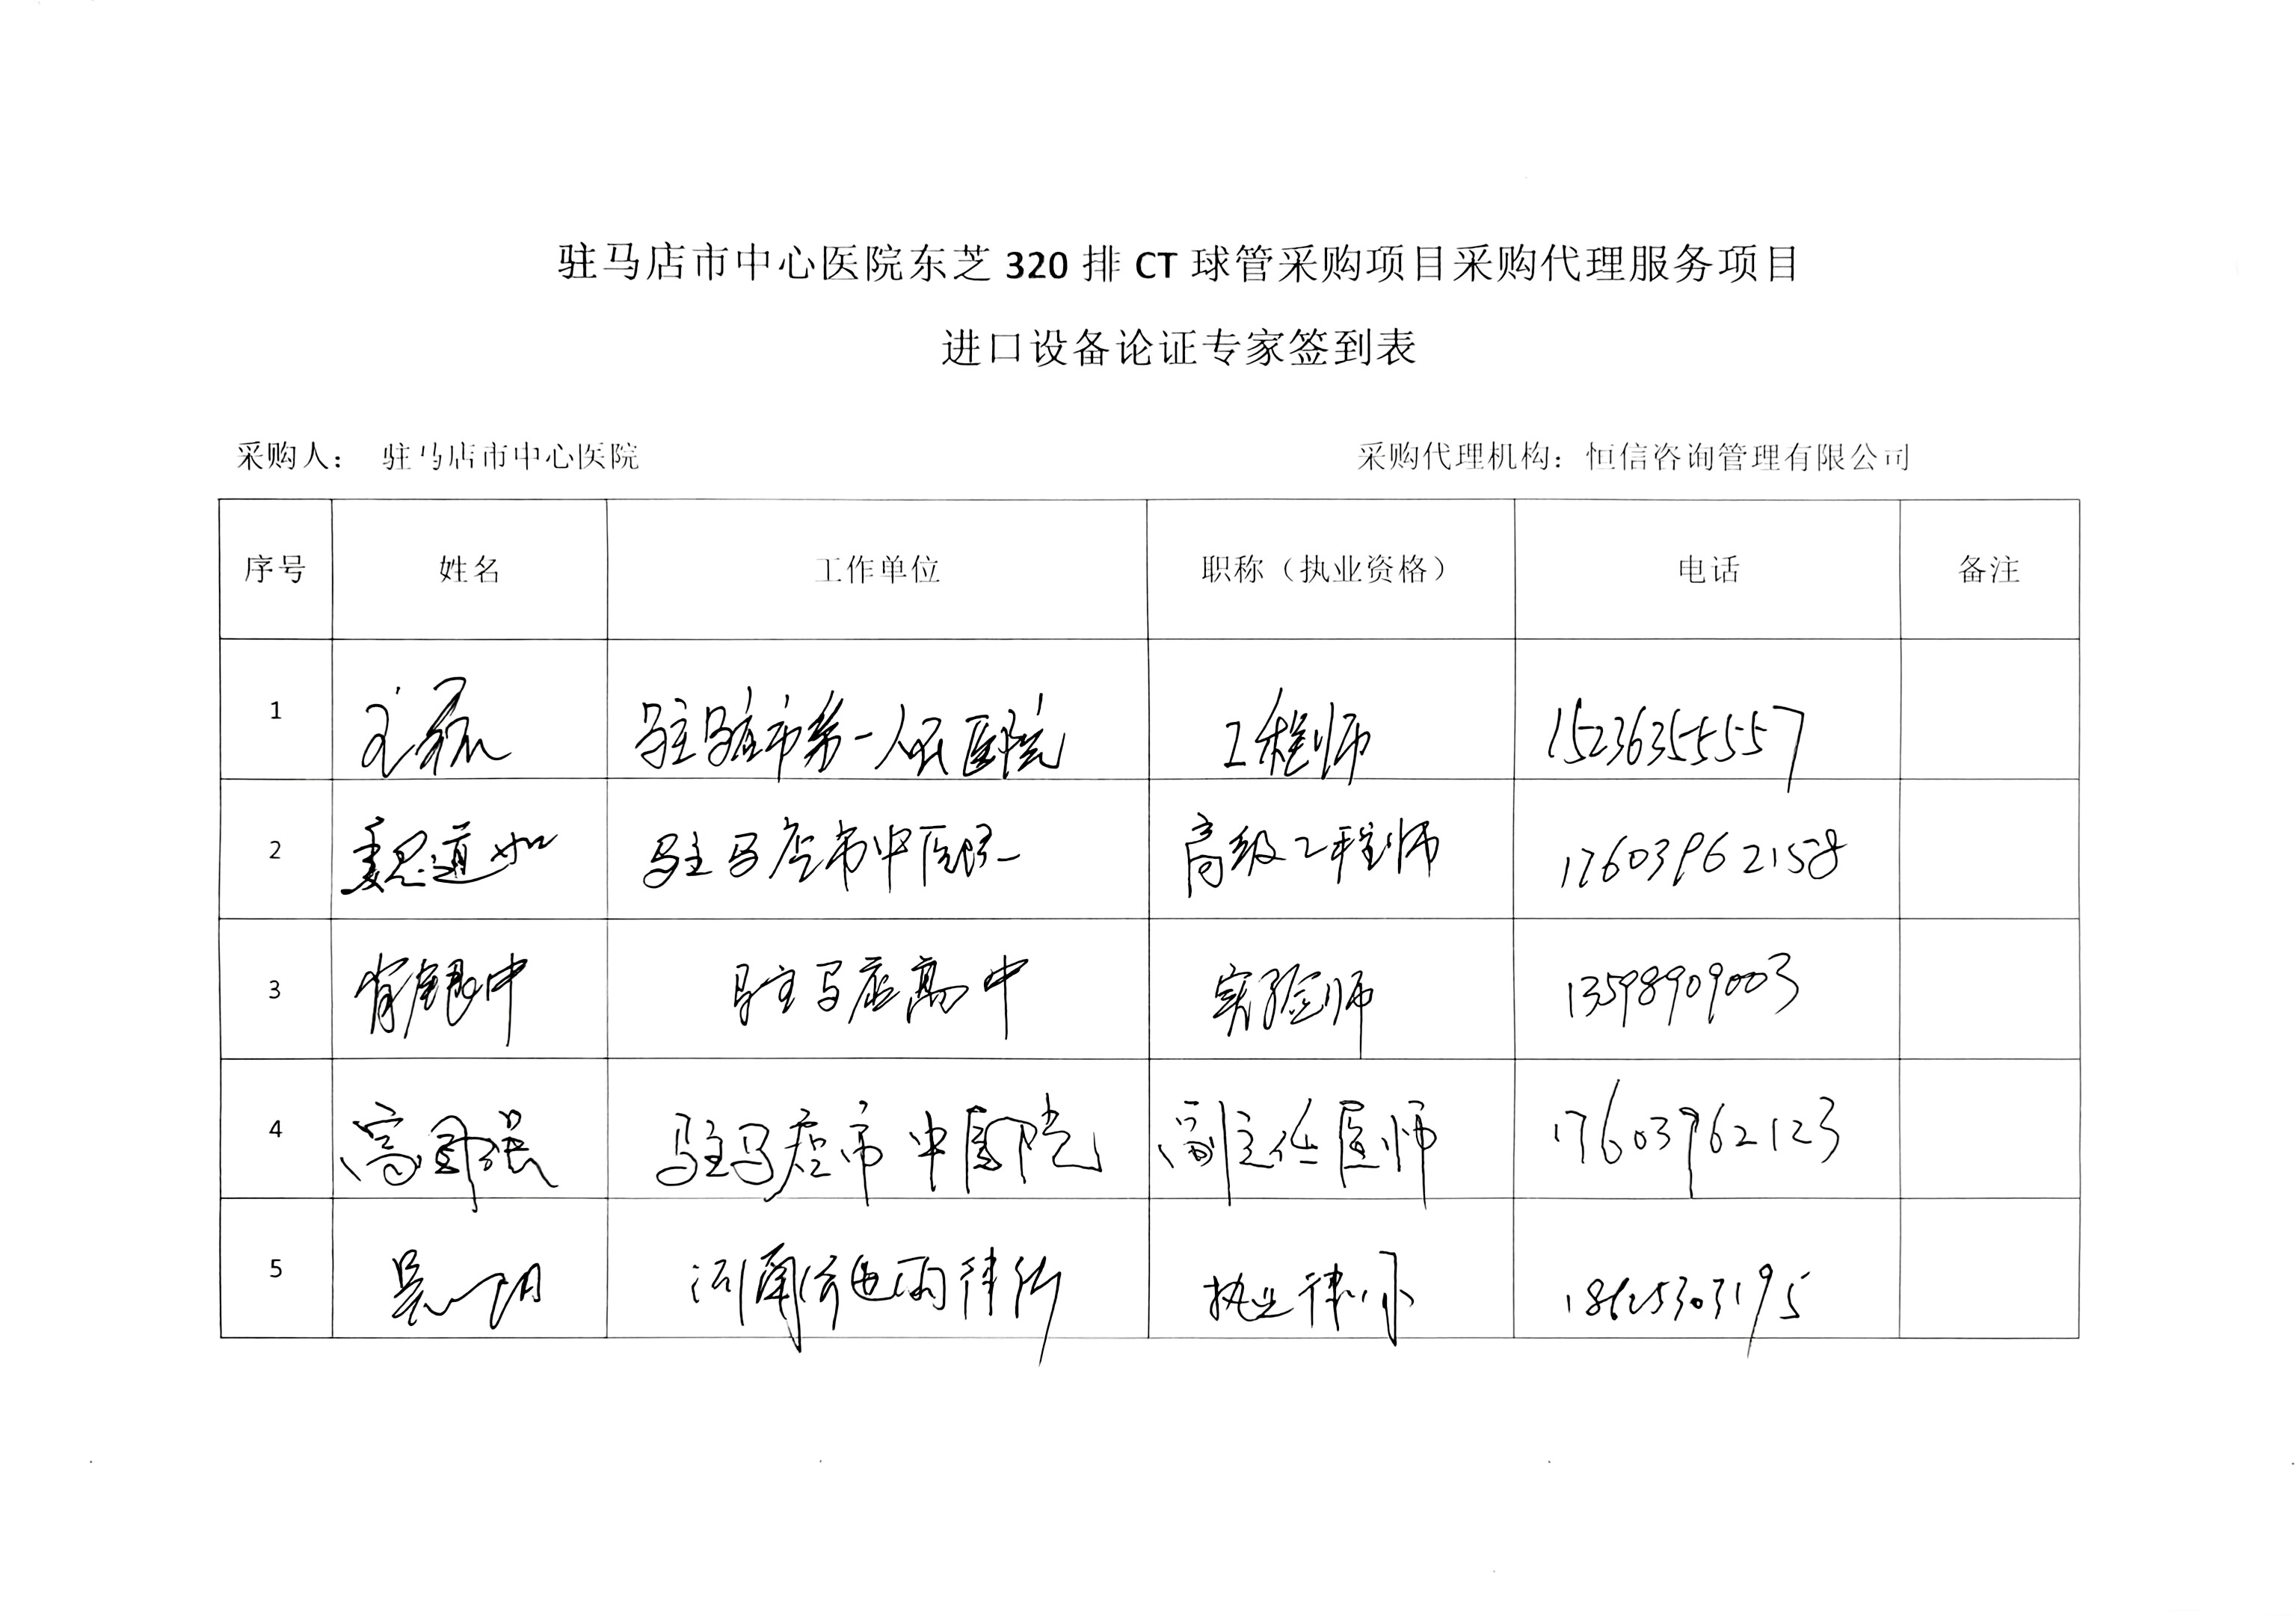 驻马店市中心医院东芝 320 排 CT 球管采购项目采购代理服务项目
进口设备论证专家签到表
采购人： 驻马店市中心医院 采购代理机构：恒信咨询管理有限公司
序号 姓名 工作单位 职称（执业资格） 电话 备注
1 王磊 驻马店市第一人民医院 工程师 15236355557
2 魏道如 驻马店市中医院 高级工程师 17603962158
3 肖银中 驻马店高中 实验师 13598909003
4 高国强 驻马店市中医院 副主任医师 17603962123
5 吴 河南 律所 执业律师 18625303195